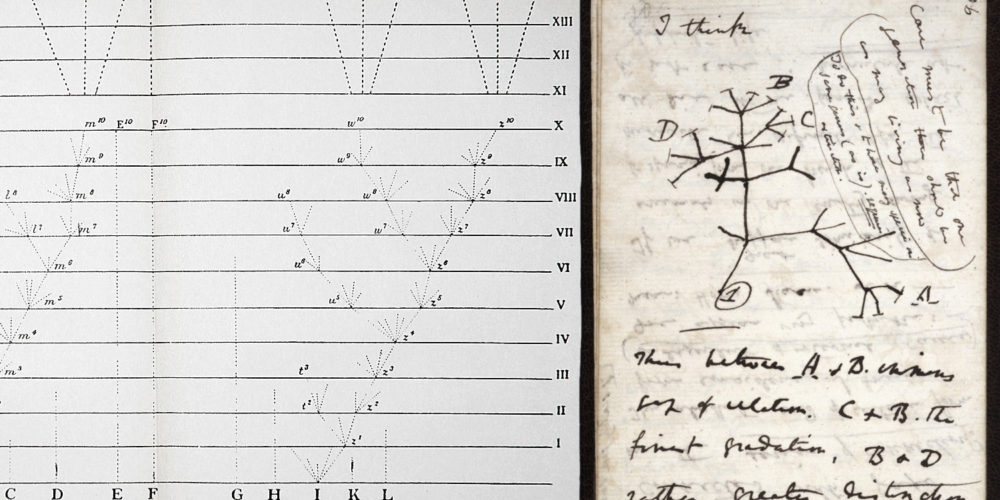 XIII
XII
XI
m¹⁰ E¹⁰ F¹⁰ w¹⁰ z¹⁰ X
m⁹ w⁹ z⁹ IX
l⁸ m⁸ u⁸ w⁸ z⁸ VIII
l⁷ m⁷ u⁷ w⁷ z⁷ VII
m⁶ u⁶ z⁶ VI
m⁵ u⁵ z⁵ V
m⁴ z⁴ IV
m³ t³ z³ III
t² z² II
z¹ I
C D E F G H I K L
I think
Case must be that one
generation then should be
as many living as now
To do this & to have many species in
same genus (as is) requires
extinction
B
C
D
A
1
Thus between A & B. immense
gap of relation. C & B. the
finest gradation, B & D
rather greater distinction